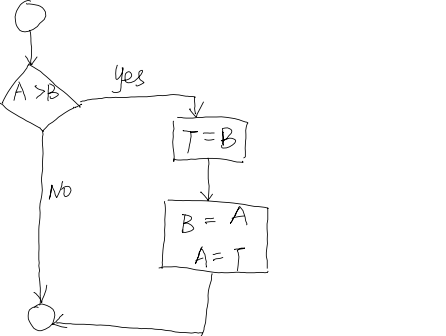 A >B
yes
T = B
No
B = A
A = T